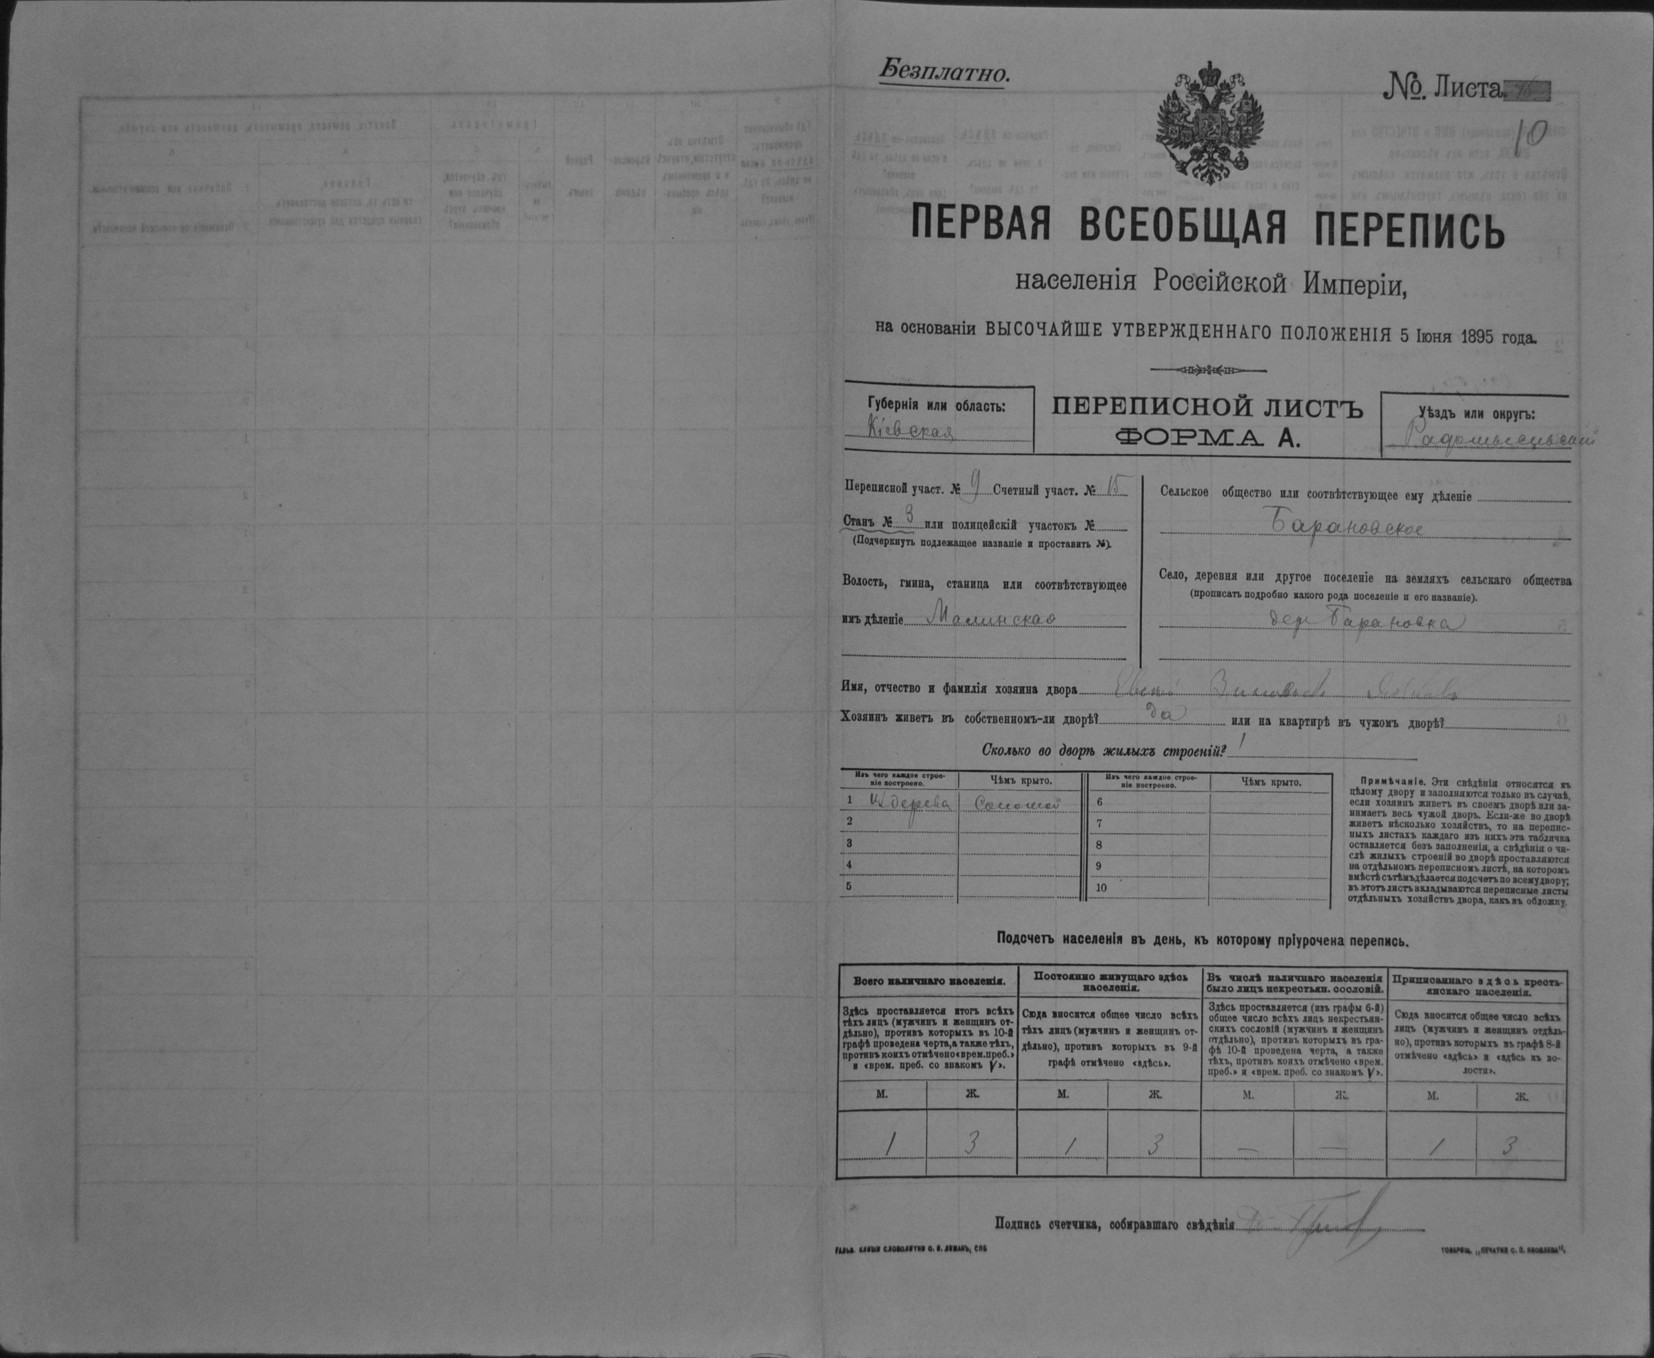 Безплатно.
№. Листа
10
ПЕРВАЯ ВСЕОБЩАЯ ПЕРЕПИСЬ
населенія Россійской Имперіи,
на основаніи ВЫСОЧАЙШЕ УТВЕРЖДЕННАГО ПОЛОЖЕНІЯ 5 Іюня 1895 года.
Губернія или область:
Кіевская
ПЕРЕПИСНОЙ ЛИСТЪ
ФОРМА А.
Уѣздъ или округъ:
Радомысльскій
Переписной участ. № 9 Счетный участ. № 15
Станъ № 3 или полицейскій участокъ №
(Подчеркнуть подлежащее названіе и проставить №).
Волость, гмина, станица или соотвѣтствующее
имъ дѣленіе Малинская
Сельское общество или соотвѣтствующее ему дѣленіе
Барановское
Село, деревня или другое поселеніе на земляхъ сельскаго общества
(прописать подробно какого рода поселеніе и его названіе).
дер Барановка
Имя, отчество и фамилія хозяина двора
Хозяинъ живетъ въ собственномъ-ли дворѣ? да или на квартирѣ въ чужомъ дворѣ?
Сколько во дворѣ жилыхъ строеній? 1
Изъ чего каждое строе-
ніе построено.
Чѣмъ крыто.
Изъ чего каждое строе-
ніе построено.
Чѣмъ крыто.
1 Из дерева Соломой 6
2 7
3 8
4 9
5 10
Примѣчаніе. Эти свѣдѣнія относятся къ
цѣлому двору и заполняются только въ случаѣ,
если хозяинъ живетъ въ своемъ дворѣ или за-
нимаетъ весь чужой дворъ. Если-же во дворѣ
живетъ нѣсколько хозяйствъ, то на перепис-
ныхъ листахъ каждаго изъ нихъ эта табличка
оставляется безъ заполненія, а свѣдѣнія о чи-
слѣ жилыхъ строеній во дворѣ проставляются
на отдѣльномъ переписномъ листѣ, на которомъ
вмѣстѣ съ тѣмъ дѣлается подсчетъ по всему двору;
въ этотъ листъ вкладываются переписные листы
отдѣльныхъ хозяйствъ двора, какъ въ обложку.
Подсчетъ населенія въ день, къ которому пріурочена перепись.
Всего наличнаго населенія.
Здѣсь проставляется итогъ всѣхъ
тѣхъ лицъ (мужчинъ и женщинъ от-
дѣльно), противъ которыхъ въ 10-й
графѣ проведена черта, а также тѣхъ,
противъ коихъ отмѣчено «врем. преб.»
и «врем. преб. со знакомъ V».
Постоянно живущаго здѣсь
населенія.
Сюда вносится общее число всѣхъ
тѣхъ лицъ (мужчинъ и женщинъ от-
дѣльно), противъ которыхъ въ 9-й
графѣ отмѣчено «здѣсь».
Въ числѣ наличнаго населенія
было лицъ некрестьян. сословій.
Здѣсь проставляется (изъ графы 6-й)
общее число всѣхъ лицъ некрестьян-
скихъ сословій (мужчинъ и женщинъ
отдѣльно), противъ которыхъ въ гра-
фѣ 10-й проведена черта, а также
тѣхъ, противъ коихъ отмѣчено «врем.
преб.» и «врем. преб. со знакомъ V».
Приписаннаго здѣсь кресть-
янскаго населенія.
Сюда вносится общее число всѣхъ
лицъ (мужчинъ и женщинъ отдѣль-
но), противъ которыхъ въ графѣ 8-й
отмѣчено «здѣсь» и «здѣсь къ во-
лости».
М. Ж. М. Ж. М. Ж. М. Ж.
1 3 1 3 — — 1 3
Подпись счетчика, собиравшаго свѣдѣнія
ТОВАРИЩ. „ПЕЧАТНЯ С. П. ЯКОВЛЕВА“,